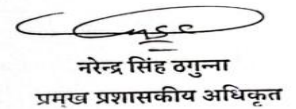 नरेन्द्र सिंह ठगुन्ना
प्रमुख प्रशासकीय अधिकृत